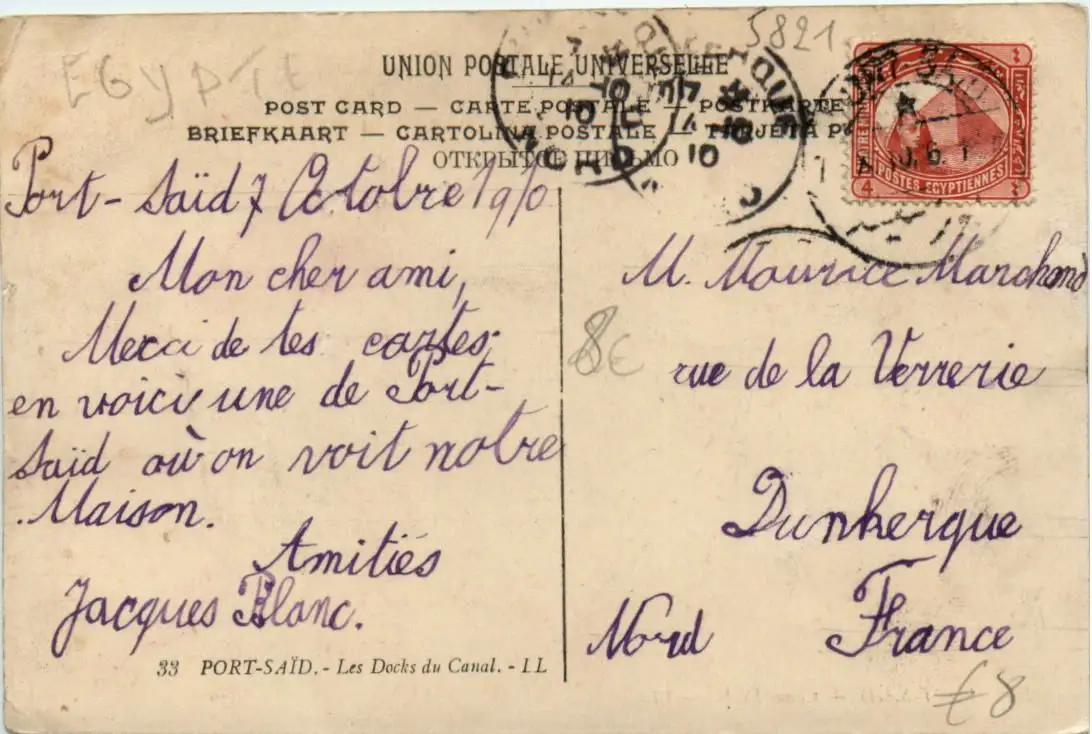 EGYPTE
5821
UNION POSTALE UNIVERSELLE
POST CARD — CARTE POSTALE — POSTKARTE
BRIEFKAART — CARTOLINA POSTALE — TARJETA
ОТКРЫТОЕ ПИСЬМО
4
POSTES EGYPTIENNES
NORD
Port-Saïd 7 Octobre 1910
Mon cher ami,
Merci de tes cartes
en voici une de Port-
Saïd où on voit notre
Maison.
Amitiés
Jacques Blanc.
33 PORT-SAÏD. - Les Docks du Canal. - LL
M. Maurice Marchand
8€
rue de la Verrerie
Dunkerque
Nord France
€8